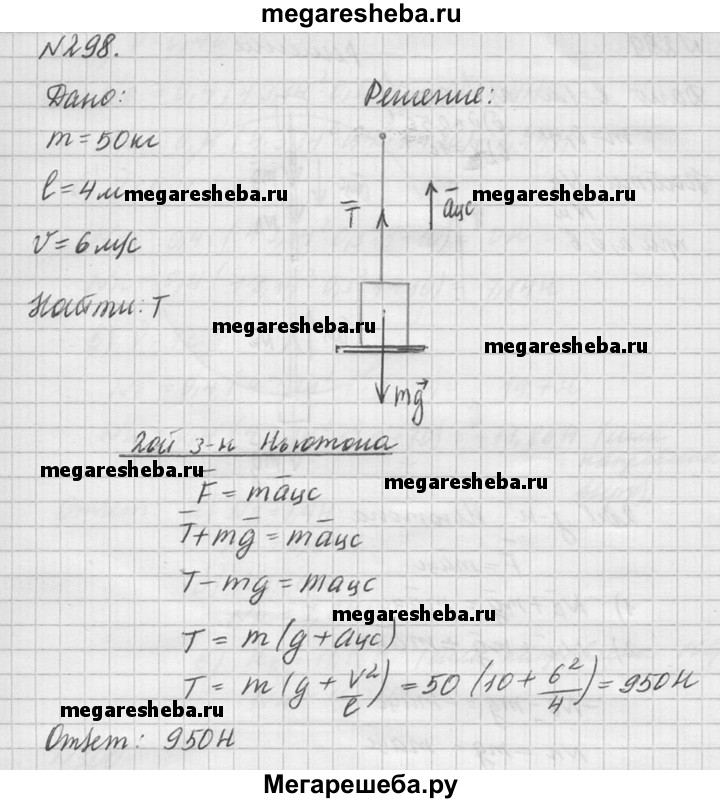 megaresheba.ru
№298.
Дано: Решение:
m = 50кг
l = 4м megaresheba.ru
T̅ a̅цс megaresheba.ru
v = 6м/с
Найти: T
megaresheba.ru
megaresheba.ru
mg⃗
2ой з-н Ньютона
megaresheba.ru
F̅ = ma̅цс megaresheba.ru
T̅ + mg̅ = ma̅цс
T − mg = maцс
megaresheba.ru
T = m(g + aцс)
T = m(g + v²/l) = 50(10 + 6²/4) = 950Н
megaresheba.ru
Ответ: 950Н
Мегарешеба.ру